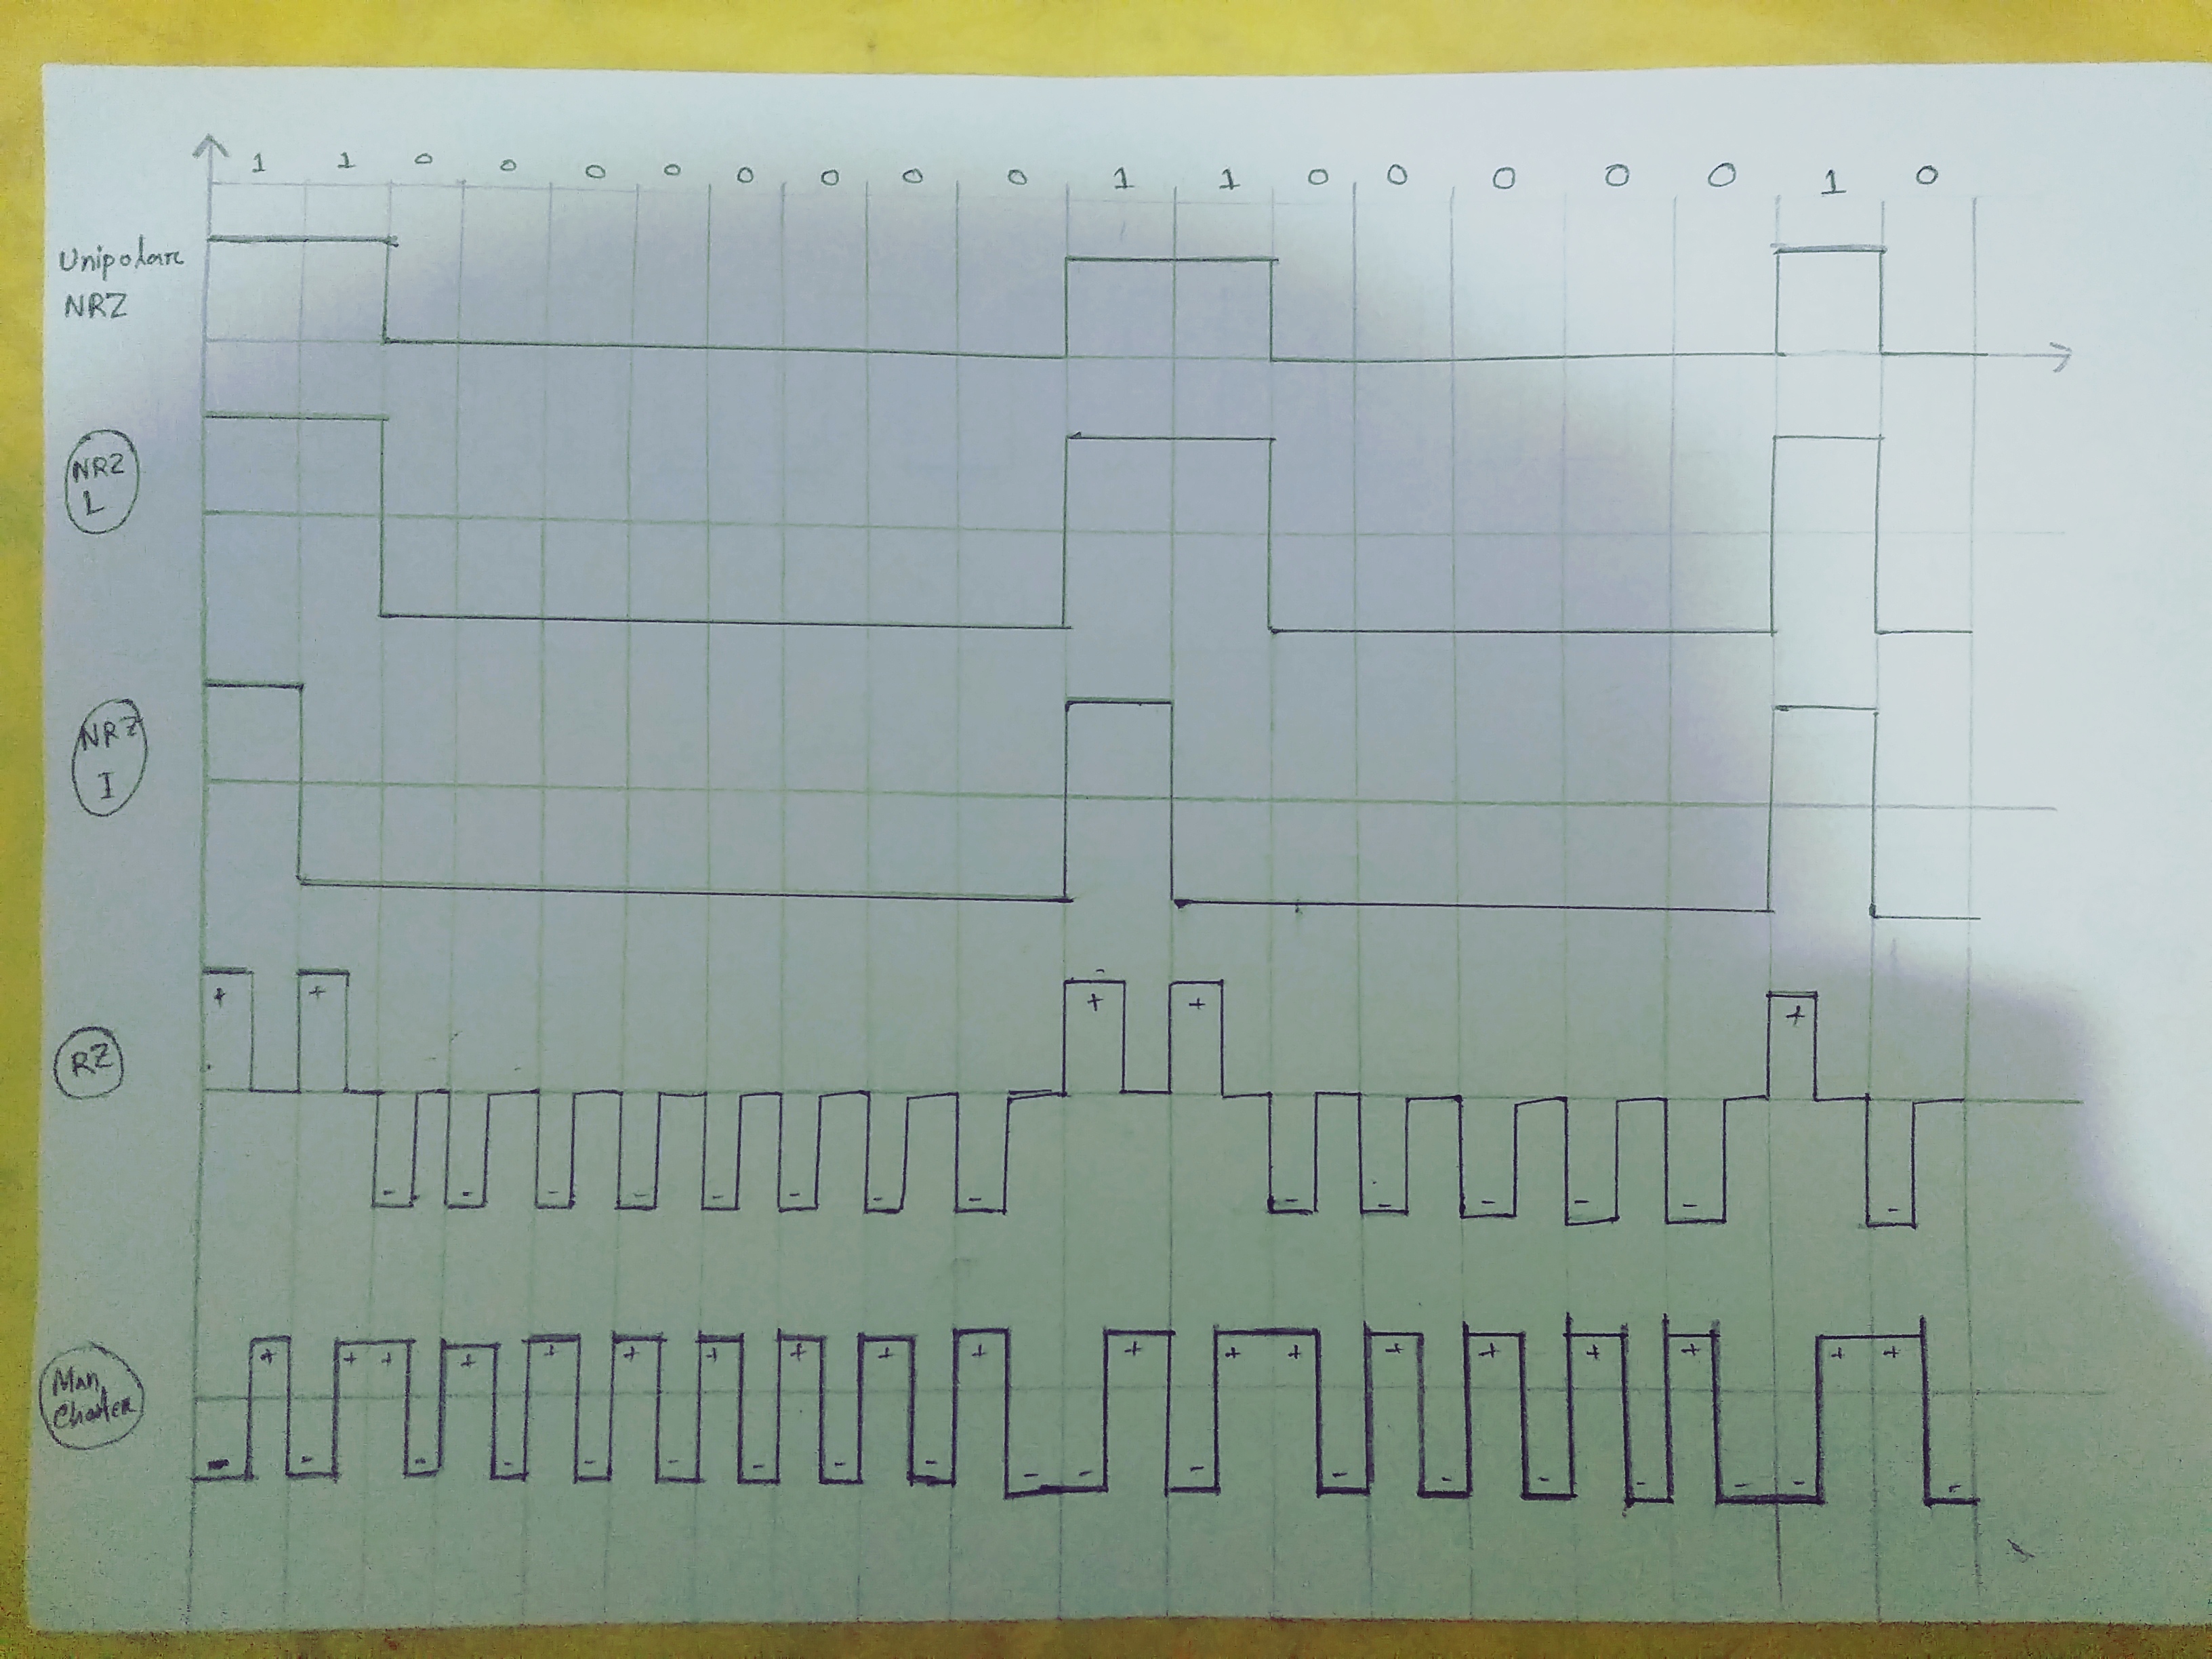 1 1 0 0 0 0 0 0 0 0 1 1 0 0 0 0 0 1 0
Unipolar
NRZ
NRZ
L
NRZ
I
+ + + + +
RZ
- - - - - - - - - - - - - -
+ + + + + + + + + + + + + + + + + + +
Man
chester
- - - - - - - - - - - - - - - - - - -